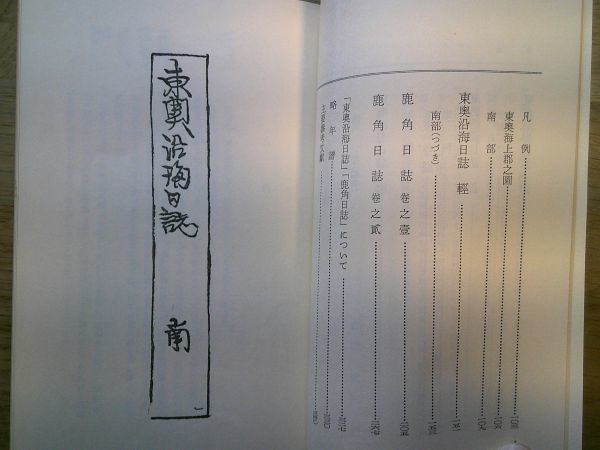 凡例
東奥海上郡之圖
南部
東奥沿海日誌 輕
南部(つづき)
鹿角日誌 卷之壹
鹿角日誌 卷之貳
「東奥沿海日誌」「鹿角日誌」について
略年譜
主要參考文献
東奥沿海日誌 南